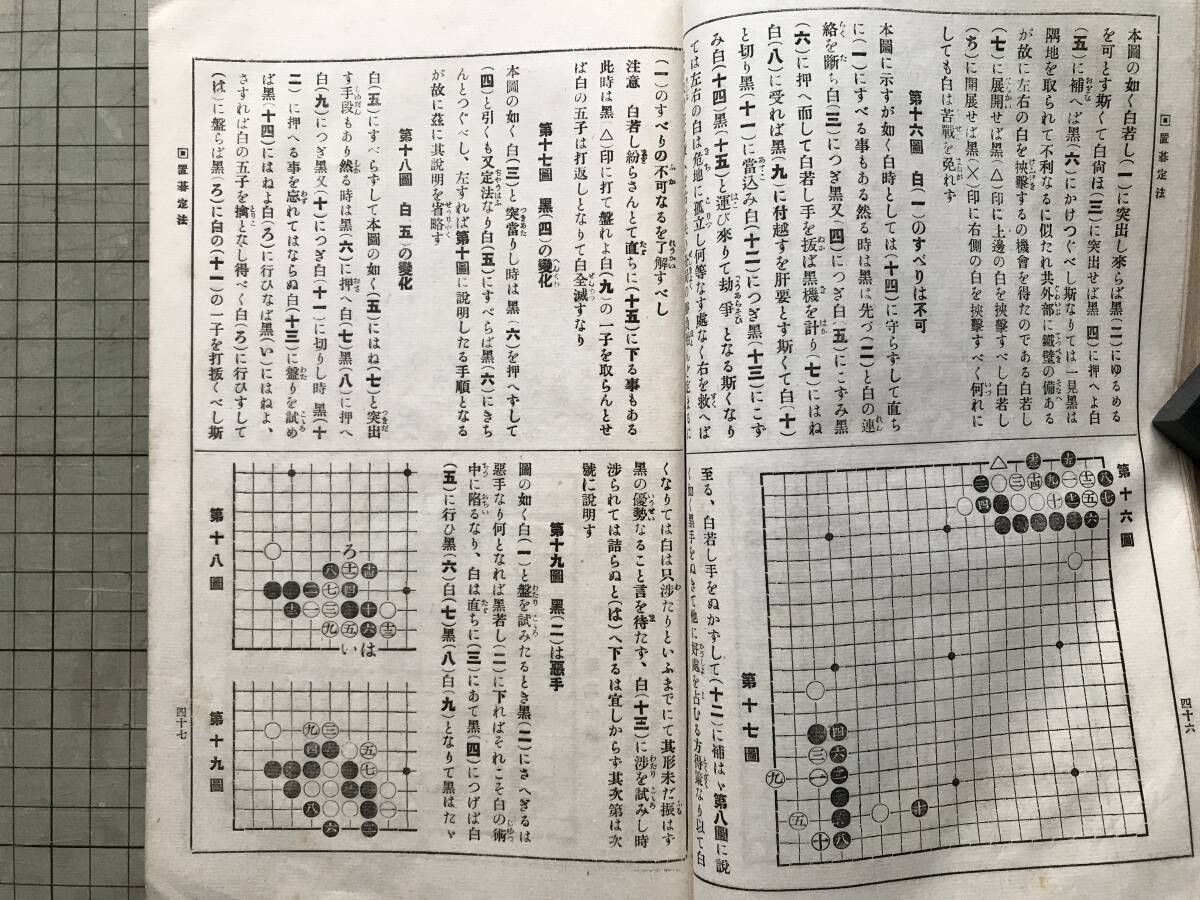 ▣置碁定法
本圖の如く白若し(一)に突出し來らば黑(二)にゆるめる
を可とす斯くて白尙ほ(三)に突出せば黑(四)に押へよ白
(五)に補へば黑(六)にかけつぐべし斯なりては一見黑は
隅地を取られて不利なるに似たれ共外部に鐵壁の備ある
が故に左右の白を挾擊するの機會を得たのである白若し
(七)に展開せば黑(△)印に上邊の白を挾擊すべし白若し
(ち)に開展せば黑(×)印に右側の白を挾擊すべく何れに
しても白は苦戰を免れず
第十六圖 白(一)のすべりは不可
本圖に示すが如く白時としては(十四)に守らずして直ち
に(一)にすべる事もある然る時は黑は先づ(二)と白の連
絡を斷ち白(三)につぎ黑又(四)につぎ白(五)にこすみ黑
(六)に押へ而して白若し手を拔ば黑機を計り(七)にはね
白(八)に受れば黑(九)に付越すを肝要とす斯くて白(十)
と切り黑(十一)に當込み白(十二)につぎ黑(十三)にこす
み白(十四)黑(十五)と運び來りて劫爭となる斯くなり
ては左右の白は危地に孤立し何等なす處なく右を救へば
第十六圖
至る、白若し手をぬかずして(十二)に補はゞ第八圖に說
第十七圖
四十六
(一)のすべりの不可なるを了解すべし
注意 白若し紛らさんとて直ちに(十五)に下る事もある
此時は黑(△)印に打て盤れよ白(九)の一子を取らんとせ
ば白の五子は打返しとなりて白全滅すなり
第十七圖 黑(四)の變化
本圖の如く白(三)と突當りし時は黑(六)を押へずして
(四)と引くも又定法なり白(五)にすべらば黑(六)にきち
んとつぐべし、左すれば第十圖に說明したる手順となる
が故に茲に其說明を省略す
第十八圖 白(五)の變化
白(五)にすべらずして本圖の如く(五)にはね(七)と突出
す手段もあり然る時は黑(六)に押へ白(七)黑(八)に押へ
白(九)につぎ黑又(十)につぎ白(十一)に切りし時 黑(十
二)に押へる事を忘れてはならぬ白(十三)に盤りを試め
ば黑(十四)にはねよ白(ろ)に行ひなば黑(い)にはねよ、
さすれば白の五子を擒となし得べく白(ろ)に行ひずして
(は)に盤らば黑(ろ)に白の(十一)の一子を打拔くべし斯
▣置碁定法
くなりては白は只涉たりといふまでにて其形未だ振はず
黑の優勢なること言を待たず、白(十三)に涉を試みし時
涉られては詰らぬと(は)へ下るは宜しからず其次第は次
號に說明す
第十九圖 黑(二)は惡手
圖の如く白(一)と盤を試みたるとき黑(二)にさへぎるは
惡手なり何となれば黑若し(二)に下ればそれこそ白の術
中に陷るなり、白は直ちに(三)にあて黑(四)につげば白
(五)に行ひ黑(六)白(七)黑(八)白(九)となりて黑はたゞ
第十八圖
第十九圖
四十七